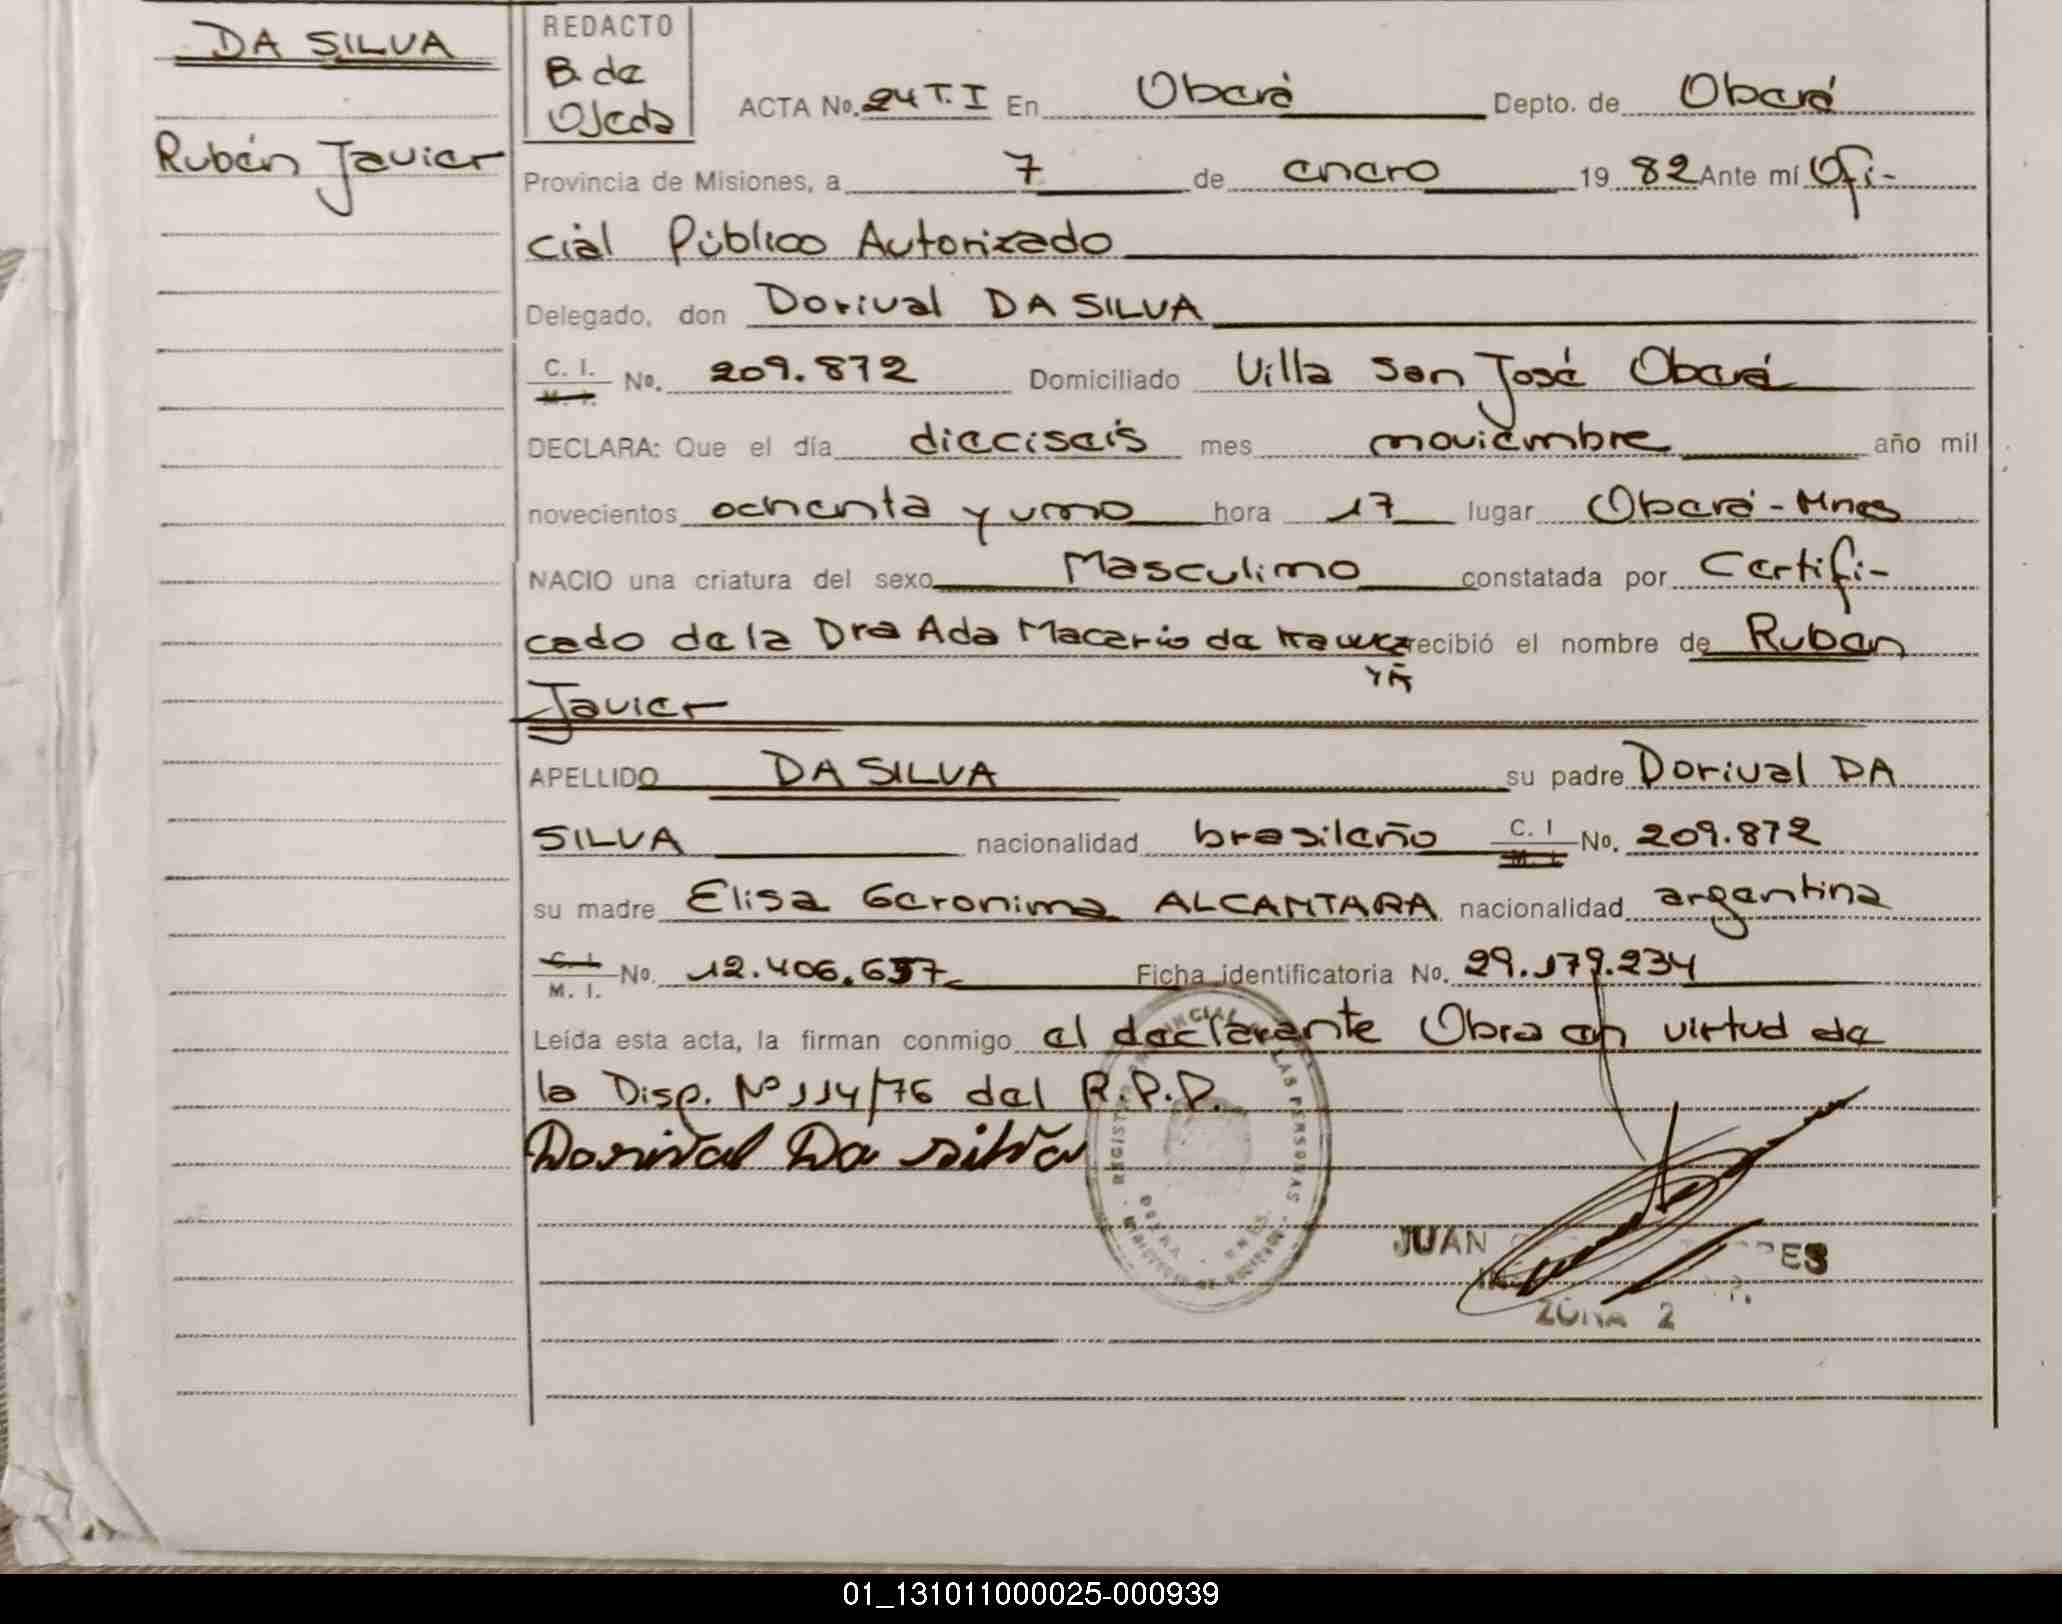 DA SILVA
Rubén Javier
REDACTO
B. de
Ojeda
ACTA No. 24 T. I En Oberá Depto. de Oberá
Provincia de Misiones, a 7 de enero 19 82 Ante mí Ofi-
cial Público Autorizado
Delegado, don Dorival DA SILVA
C. I.
M. I.
No. 209.872 Domiciliado Villa San José Oberá
DECLARA: Que el día dieciseis mes noviembre año mil
novecientos ochenta y uno hora 17 lugar Oberá - Mnes
NACIO una criatura del sexo Masculino constatada por Certifi-
cado de la Dra Ada Macario de recibió el nombre de Ruben
Javier
APELLIDO DA SILVA su padre Dorival DA
SILVA nacionalidad brasileño C. I No. 209.872
su madre Elisa Geronima ALCANTARA nacionalidad argentina
C. I.
M. I.
No. 12.406.657 Ficha identificatoria No. 29.179.234
Leída esta acta, la firman conmigo el declarante Obra en virtud de
la Disp. Nº 114/76 del R.P.P.
Dorival Da Silva
LAS PERSONAS
OBERA
JUAN
ZONA 2
01_131011000025-000939